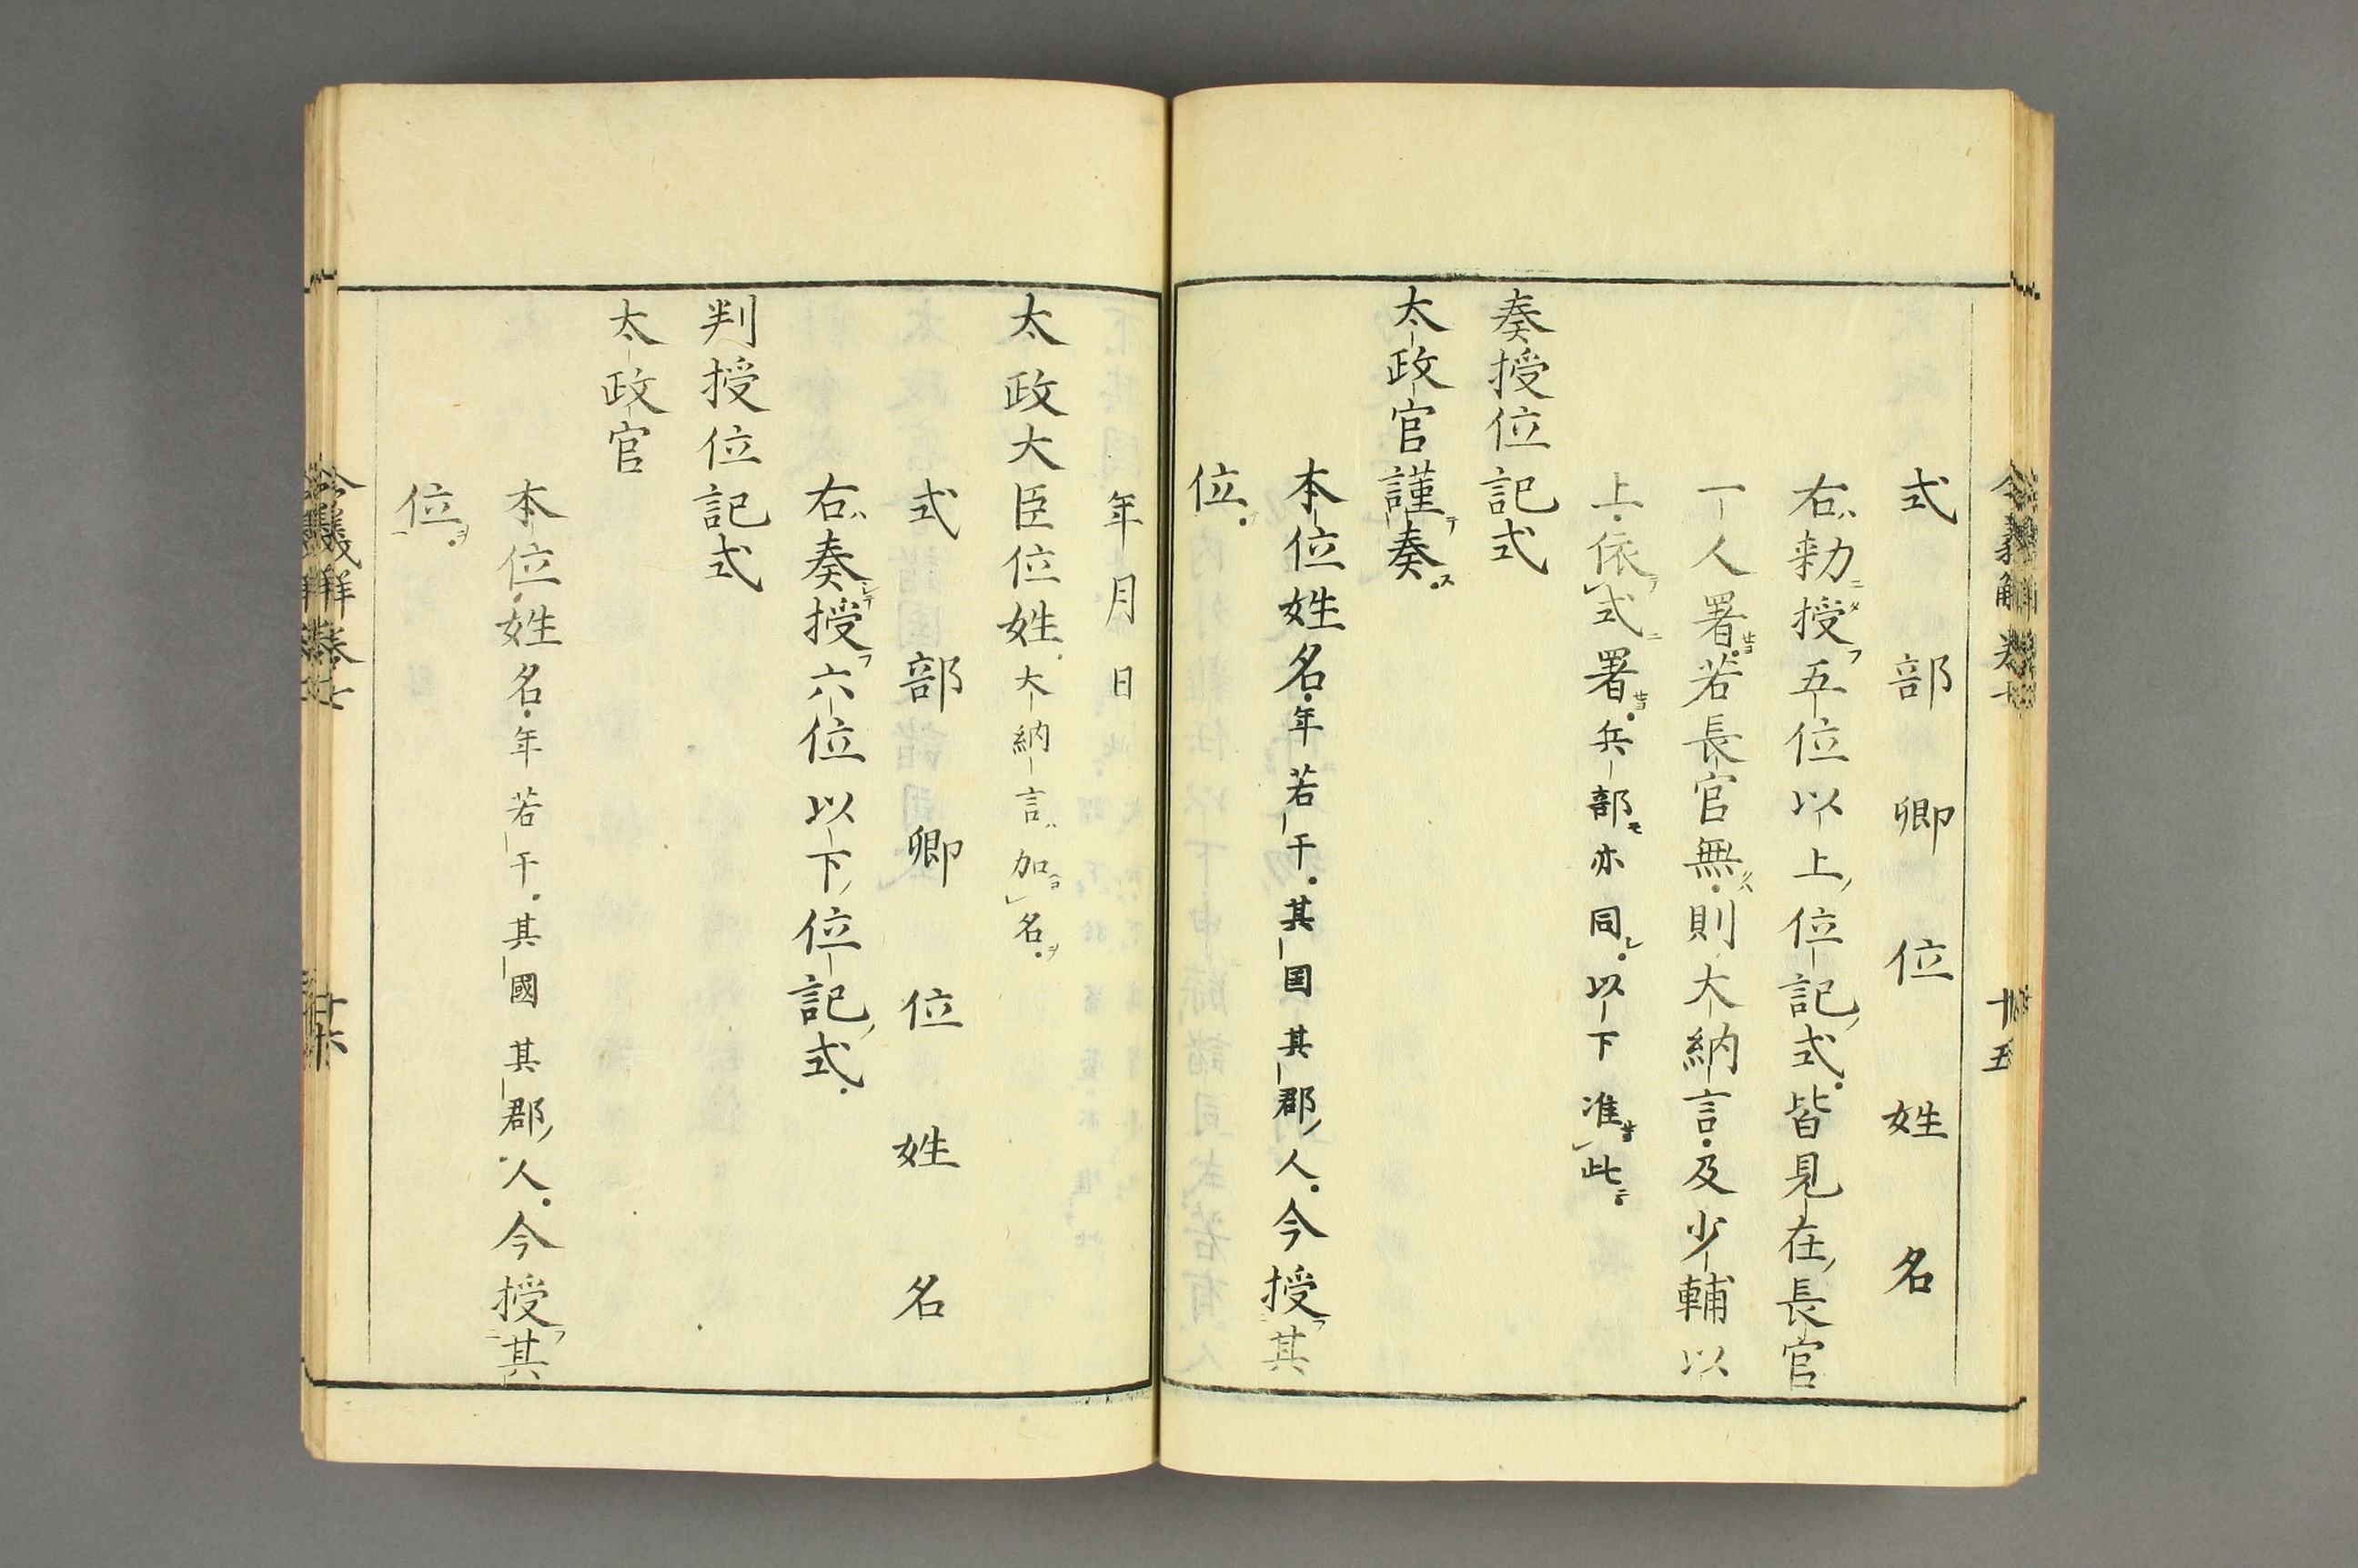 式部卿位姓名
右勅授五位以上位記式皆見在長官
一人署若長官無則大納言及少輔以
上依式署兵部亦同以下准此
奏授位記式
太政官謹奏
本位姓名年若干其国其郡人今授其
位
年月日
太政大臣位姓大納言加名
式部卿位姓名
右奏授六位以下位記式
判授位記式
太政官
本位姓名年若干其國其郡人今授其
位